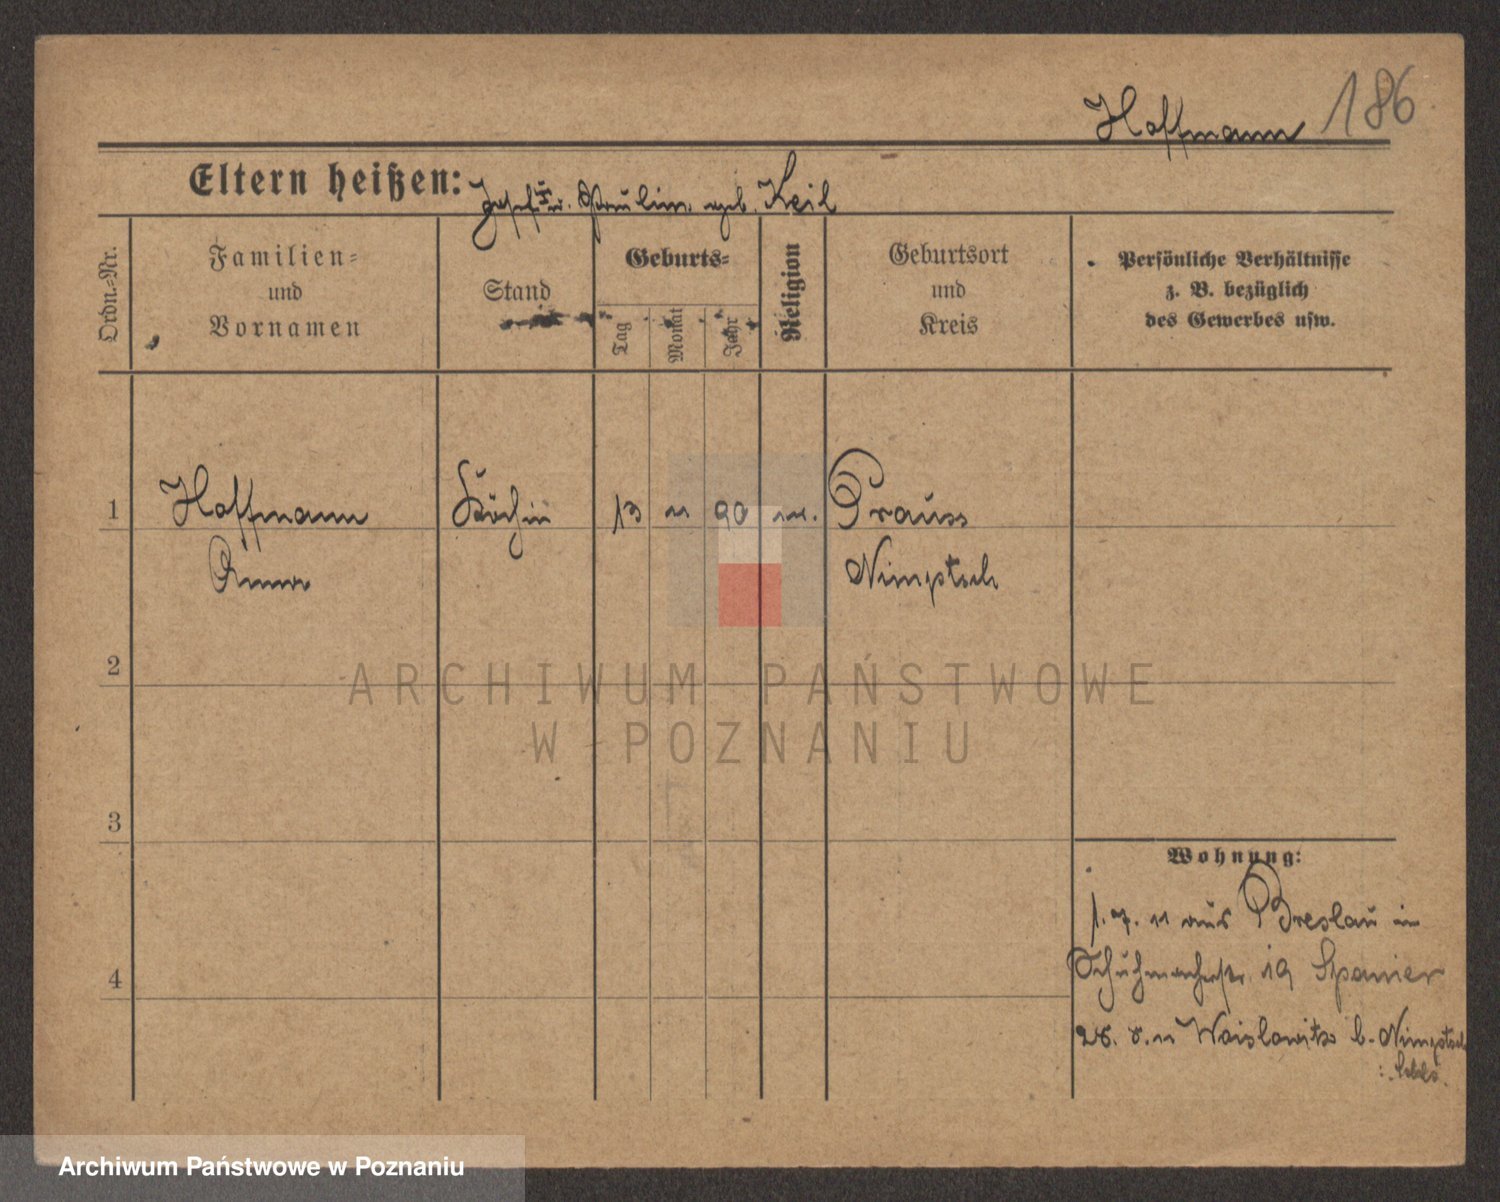 Hoffmann 186
Eltern heißen: Josef u. Paulin. geb. Keil
Ordn.-Nr.
Familien-
und
Vornamen
Stand
Geburts-
Tag
Monat
Jahr
Religion
Geburtsort
und
Kreis
Persönliche Verhältnisse
z. B. bezüglich
des Gewerbes usw.
1 Hoffmann Köchin 13 11 90 Prauss
Anna Nimptsch
2
ARCHIWUM PAŃSTWOWE
W POZNANIU
3
Wohnung:
1. 7. 11 aus Breslau in
Schuhmacherstr. 19 Spanier
4
28. 8. 11 Woislowitz b. Nimptsch
Archiwum Państwowe w Poznaniu